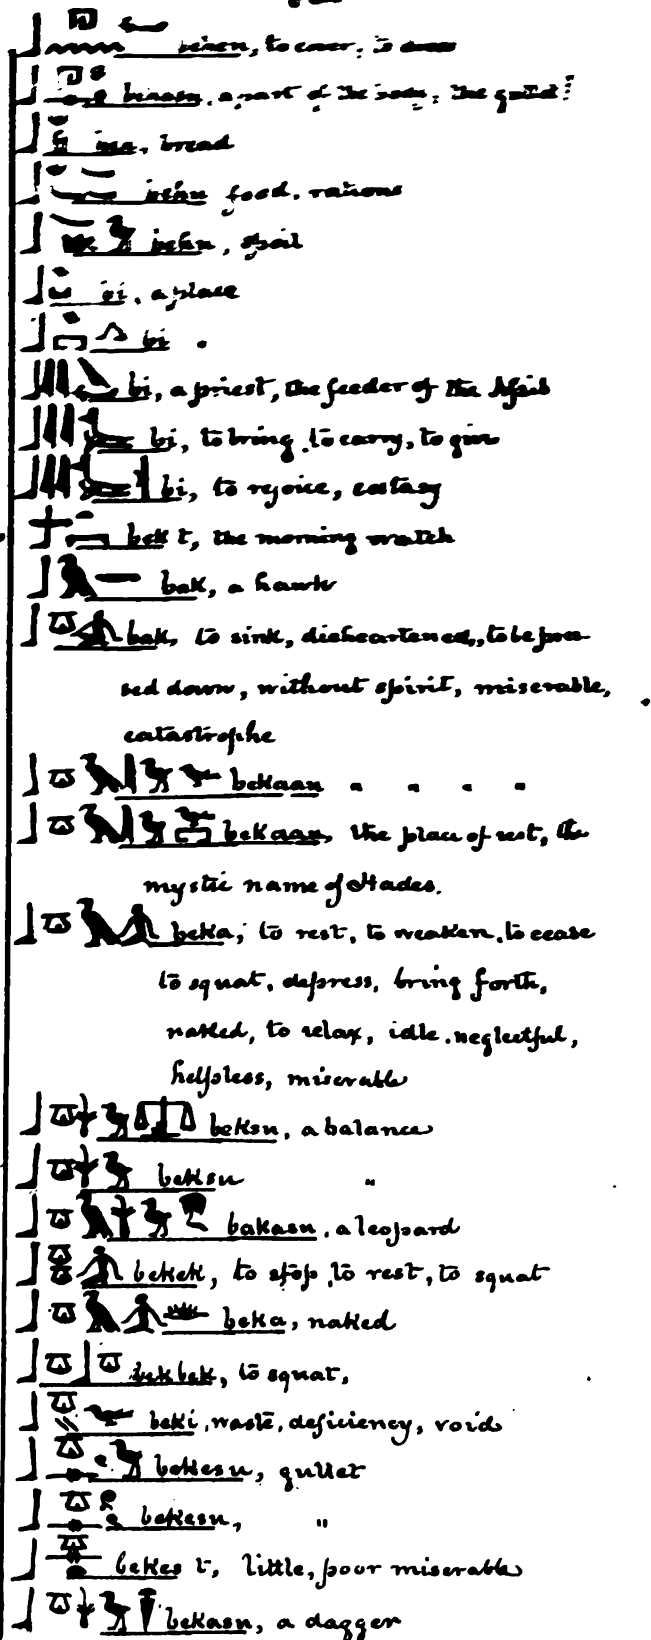 to cover,
a part of the body, the gullet
bread
food, rations
behu, spoil
bi, a place
bi
bi, a priest, the feeder of the Apis
bi, to bring, to carry, to give
bi, to rejoice, ecstasy
bek t, the morning watch
bak, a hawk
bak, to sink, disheartened, to be pres-
sed down, without spirit, miserable,
catastrophe
bekaau " " " "
bekaau, the place of rest, the
mystic name of Hades.
beka, to rest, to weaken, to cease
to squat, depress, bring forth,
naked, to relax, idle, neglectful,
helpless, miserable
beksu, a balance
beksu "
bakasu, a leopard
bekek, to stop, to rest, to squat
beka, naked
bekbek, to squat,
beki, waste, deficiency, void
bekesu, gullet
bekesu, "
bekes t, little, poor miserable
bekasu, a dagger